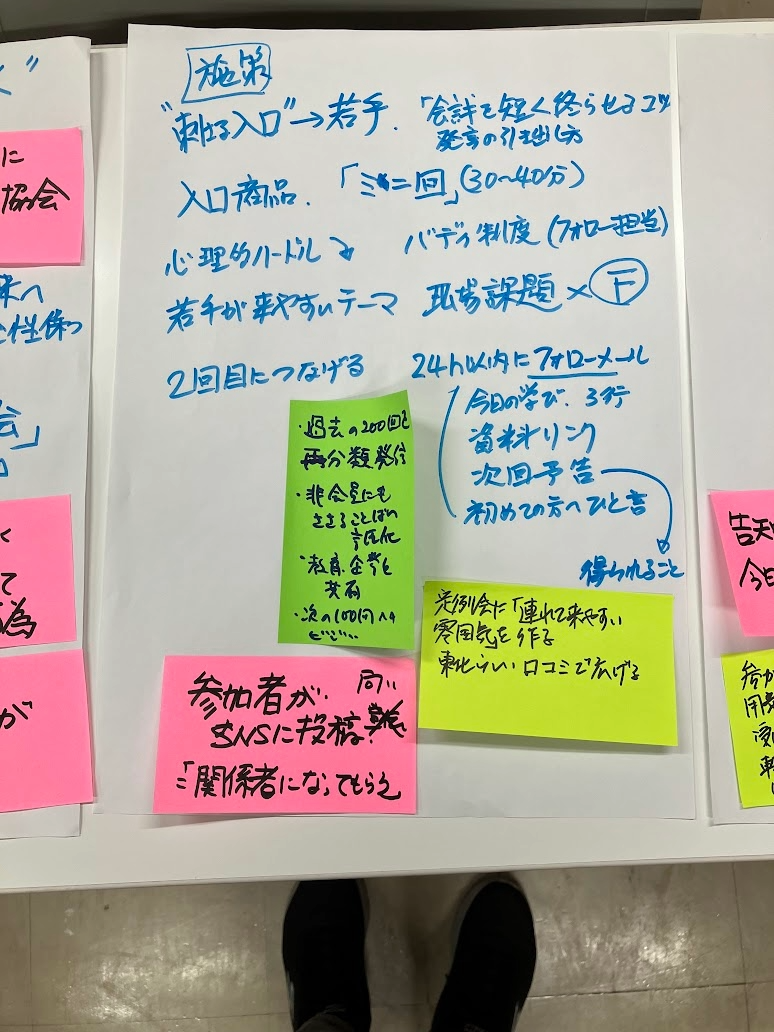 施策
"刺さる入口"→若手.「会議を短く終らせるコツ
発言の引き出し方
入口商品.「ミニ回」(30〜40分)
心理的ハードル↘ バディ制度(フォロー担当)
若手が来やすいテーマ 現場課題×F
2回目につなげる 24h以内にフォローメール
今日の学び、3行
資料リンク
次回予告
初めての方へひと言
得られること
・過去の200回を
再分類発信
・非会員にも
ささることばの
言語化
・教育企業を
・次の100回へ
定例会に「連れて来やすい
雰囲気を作る
東北らしい口コミで広げる
参加者が、
SNSに投稿
ミニ関係者になってもらう
に
協会
会」
って
為
が
告知
今日